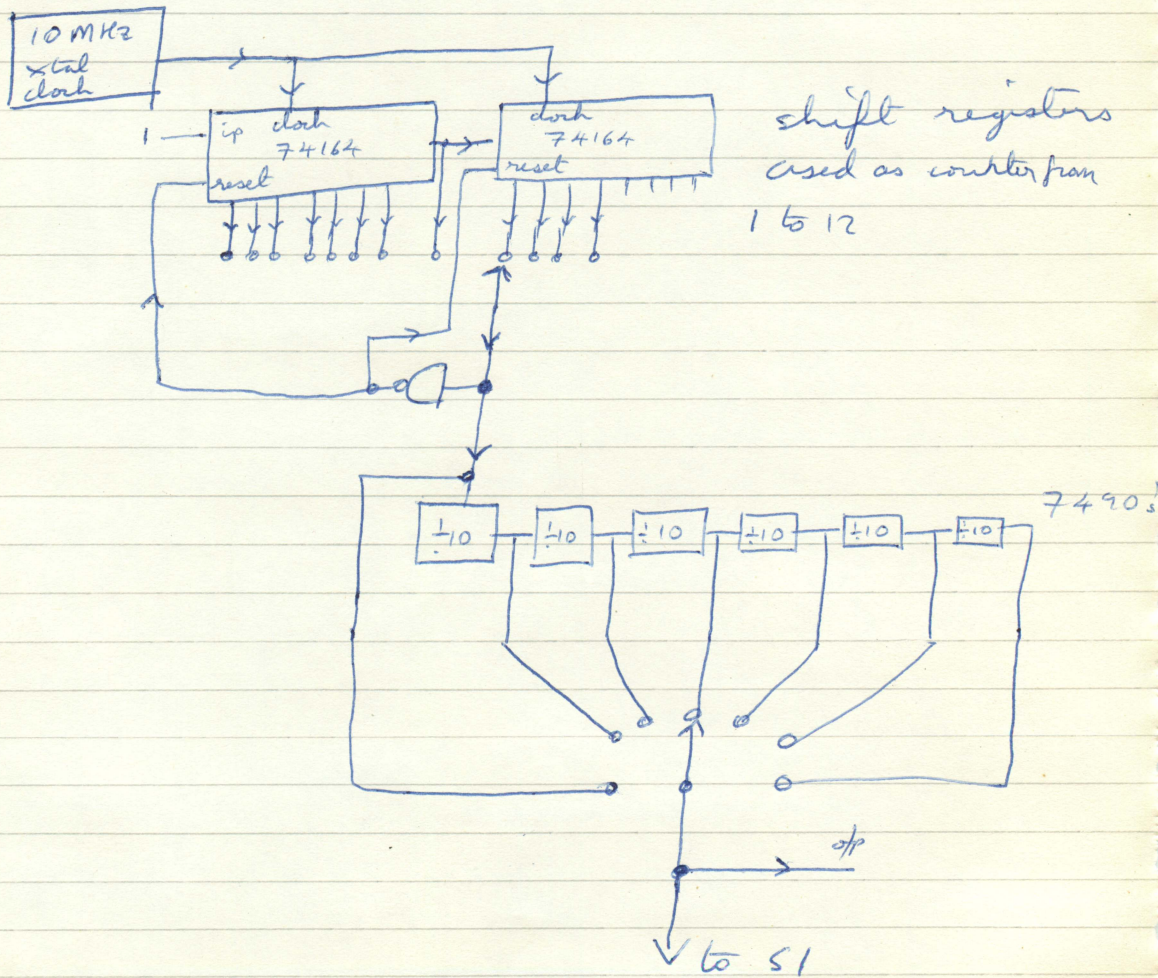 10 MHz
xtal
clock
1
ip clock
74164
reset
clock
74164
reset
shift registers
used as counter from
1 to 12
7490s
÷10
÷10
÷10
÷10
÷10
÷10
o/p
to S1